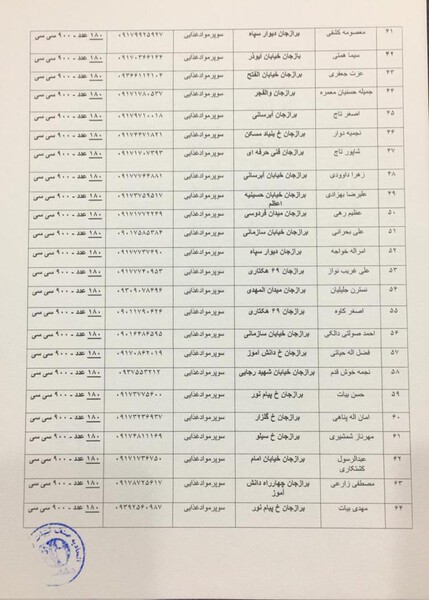 ۴۱ معصومه کشفی برازجان دیوار سپاه سوپرموادغذایی ۰۹۱۷۹۹۲۵۹۲۷ ۱۸۰ عدد - ۹۰۰ سی سی
۴۲ سیما همتی بازجان خیابان ابوذر سوپرموادغذایی ۰۹۱۷۰۳۶۶۱۴۴ ۱۸۰ عدد - ۹۰۰ سی سی
۴۳ عزت جعفری برازجان خیابان الفتح سوپرموادغذایی ۰۹۳۶۶۱۱۲۱۰۴ ۱۸۰ عدد - ۹۰۰ سی سی
۴۴ جمیله حسنیان معمره برازجان والفجر سوپرموادغذایی ۰۹۱۷۱۷۸۰۵۳۷ ۱۸۰ عدد - ۹۰۰ سی سی
۴۵ اصغر تاج برازجان آبرسانی سوپرموادغذایی ۰۹۱۷۹۷۱۰۰۱۸ ۱۸۰ عدد - ۹۰۰ سی سی
۴۶ نجمیه دوار برازجان خ بنیاد مسکن سوپرموادغذایی ۰۹۱۷۴۴۷۱۸۲۱ ۱۸۰ عدد - ۹۰۰ سی سی
۴۷ شاپور تاج برازجان فنی حرفه ای سوپرموادغذایی ۰۹۱۷۱۰۷۰۷۳۹۳ ۱۸۰ عدد - ۹۰۰ سی سی
۴۸ زهرا داوودی برازجان خیابان آبرسانی سوپرموادغذایی ۰۹۱۷۷۷۴۴۸۸۱ ۱۸۰ عدد - ۹۰۰ سی سی
۴۹ علیرضا بهزادی برازجان خیابان حسینیه سوپرموادغذایی ۰۹۱۷۳۷۵۹۵۱۷ ۱۸۰ عدد - ۹۰۰ سی سی
اعظم
۵۰ عظیم رهی برازجان میدان فردوسی سوپرموادغذایی ۰۹۱۷۱۷۷۲۲۴۹ ۱۸۰ عدد - ۹۰۰ سی سی
۵۱ علی بحرانی برازجان خیابان سازمانی سوپرموادغذایی ۰۹۰۱۷۵۸۵۳۸۴ ۱۸۰ عدد - ۹۰۰ سی سی
۵۲ امراله خواجه برازجان دیوار سپاه سوپرموادغذایی ۰۹۱۷۷۷۳۷۴۹۰ ۱۸۰ عدد - ۹۰۰ سی سی
۵۳ علی غریب نواز برازجان ۴۹ هکتاری سوپرموادغذایی ۰۹۱۷۷۷۴۰۹۵۳ ۱۸۰ عدد - ۹۰۰ سی سی
۵۴ نسترن جلیلیان برازجان میدان المهدی سوپرموادغذایی ۰۹۳۰۹۰۷۸۴۹۴ ۱۸۰ عدد - ۹۰۰ سی سی
۵۵ اصغر کاوه برازجان ۴۹ هکتاری سوپرموادغذایی ۰۹۰۱۱۷۹۰۴۲۴ ۱۸۰ عدد - ۹۰۰ سی سی
۵۶ احمد صولتی دالکی برازجان خیابان سازمانی سوپرموادغذایی ۰۹۰۱۶۴۸۶۵۹۵ ۱۸۰ عدد - ۹۰۰ سی سی
۵۷ فضل اله حیاتی برازجان خ دانش آموز سوپرموادغذایی ۰۹۱۷۰۸۶۲۰۱۹ ۱۸۰ عدد - ۹۰۰ سی سی
۵۸ نجمه خوش قدم برازجان خیابان شهید رجایی سوپرموادغذایی ۰۹۳۷۵۵۳۲۱۲ ۱۸۰ عدد - ۹۰۰ سی سی
۵۹ حسن بیات برازجان خ پیام نور سوپرموادغذایی ۰۹۱۷۳۷۷۵۶۰۰ ۱۸۰ عدد - ۹۰۰ سی سی
۶۰ امان اله پناهی برازجان خ گلزار سوپرموادغذایی ۰۹۱۷۳۲۳۶۹۳۷ ۱۸۰ عدد - ۹۰۰ سی سی
۶۱ مهرناز شمشیری برازجان خ سیلو سوپرموادغذایی ۰۹۱۷۴۸۱۱۱۶۹ ۱۸۰ عدد - ۹۰۰ سی سی
۶۲ عبدالرسول برازجان خیابان امام سوپرموادغذایی ۰۹۱۷۱۷۳۶۷۵۰ ۱۸۰ عدد - ۹۰۰ سی سی
کشتکاری
۶۳ مصطفی زارعی برازجان چهارراه دانش سوپرموادغذایی ۰۹۱۷۸۷۲۵۶۱۷ ۱۸۰ عدد - ۹۰۰ سی سی
آموز
۶۴ مهدی بیات برازجان خ پیام نور سوپرموادغذایی ۰۹۳۹۲۵۶۰۹۸۷ ۱۸۰ عدد - ۹۰۰ سی سی